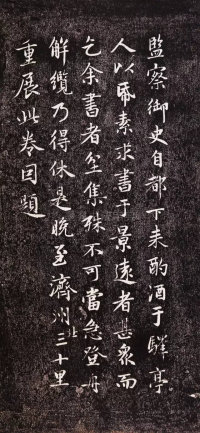 監察御史自都下来酌酒于驛亭
人以㡌素求書于景遠者甚衆而
乞余書者坌集殊不可當急登舟
解纜乃得休是晚至濟州北三十里
重展此卷因題